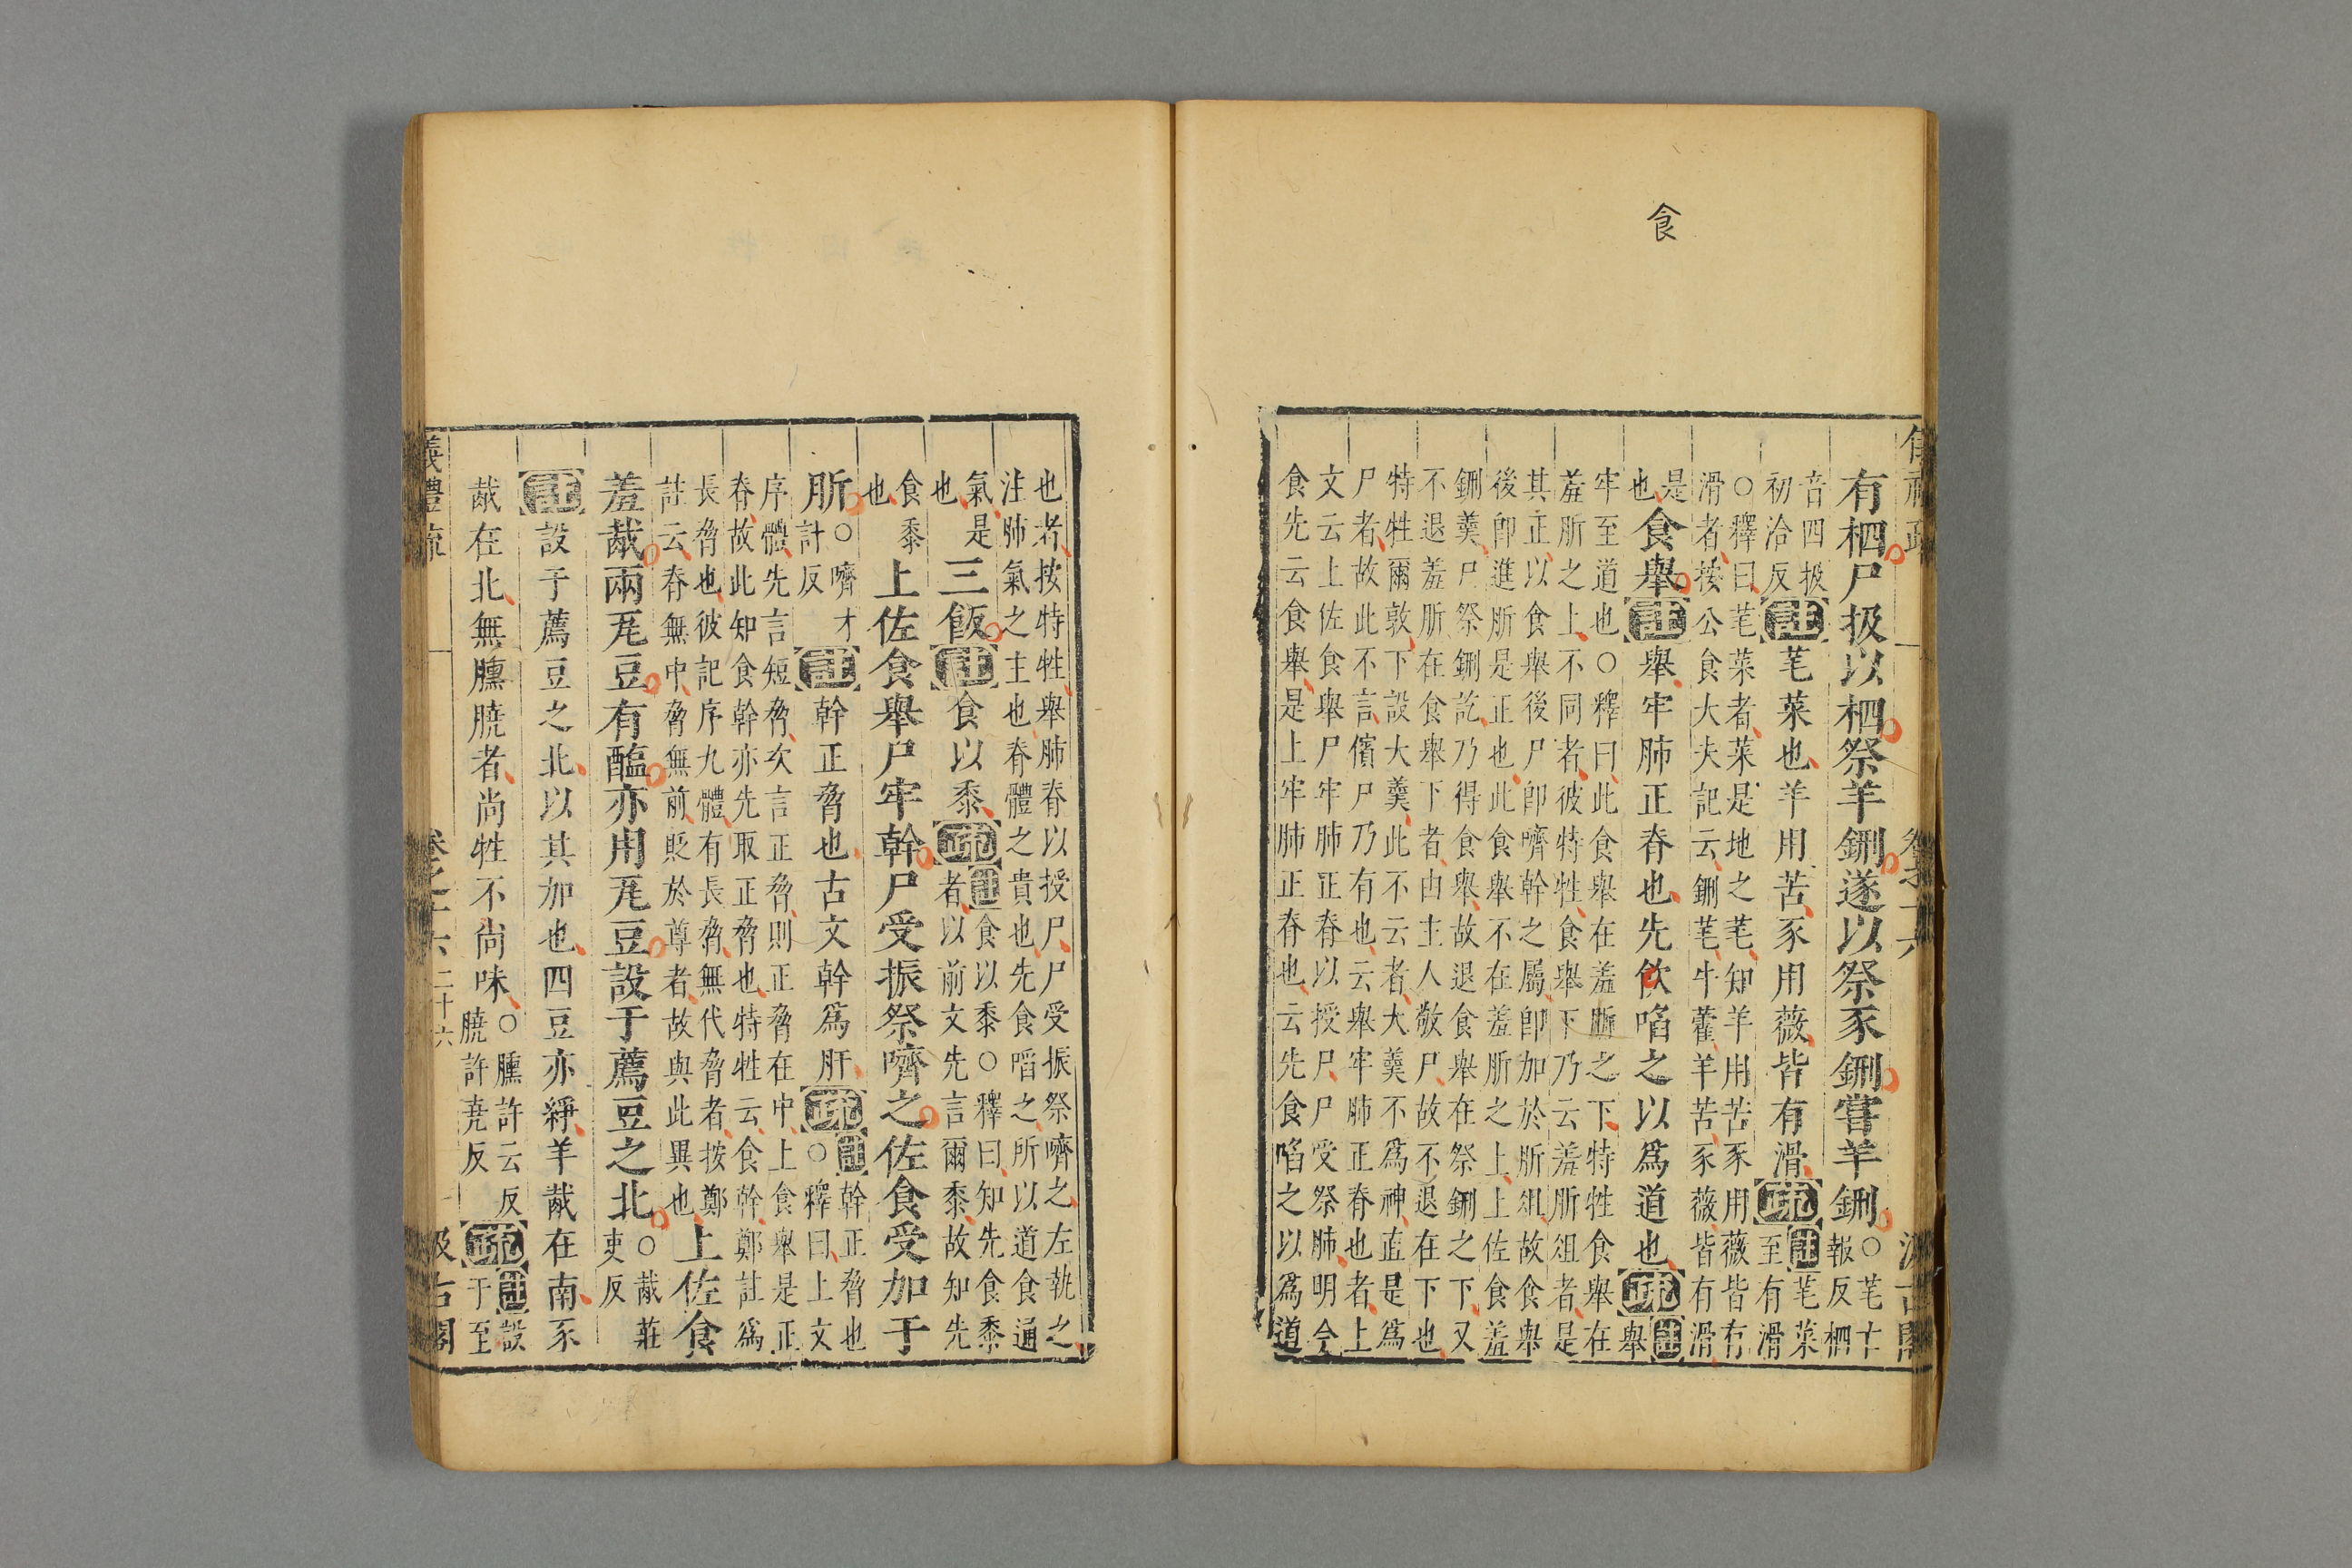 食
有柶尸扱以柶祭羊鉶遂以祭豕鉶嘗羊鉶○芼亡報反柶
音四扱初洽反註芼菜也羊用苦豕用薇皆有滑疏註芼菜至有滑
○釋曰芼菜者菜是地之芼知羊用苦豕用薇皆有
滑者按公食大夫記云鉶芼牛藿羊苦豕薇皆有滑
是也食舉註舉牢肺正脊也先飲啗之以爲道也疏註舉
牢至道也○釋曰此食舉在羞肵之下特牲食舉在
羞肵之上不同者彼特牲食舉下乃云羞肵俎者是
其正以食舉後尸卽嚌幹之屬卽加於肵俎故食舉
後卽進肵是正也此食舉不在羞肵之上上佐食羞
鉶羹尸祭鉶訖乃得食舉故退食舉在祭鉶之下又
不退羞肵在食舉下者由主人敬尸故不退在下也
特牲爾敦下設大羹此不云者大羹不爲神直是爲
尸者故此不言儐尸乃有也云舉牢肺正脊也者上
文云上佐食舉尸牢肺正脊以授尸尸受祭肺明今
食先云食舉是上牢肺正脊也云先食啗之以爲道
也者按特牲舉肺脊以授尸尸受振祭嚌之左執之
注肺氣之主也脊體之貴也先食啗之所以道食通
氣是也三飯註食以黍疏註食以黍○釋曰知先食黍者以前文先言爾黍故知先
食黍也上佐食舉尸牢幹尸受振祭嚌之佐食受加于
肵○嚌才計反註幹正脅也古文幹爲肝疏註幹正脅也○釋曰上文
序體先言短脅次言正脅則正脅在中上食舉是正
脊故此知食幹亦先取正脅也特牲云食幹鄭註爲
長脅也彼記序九體有長脅無代脅者按鄭
註云脊無中脅無前貶於尊者故與此異也上佐食
羞胾兩瓦豆有醢亦用瓦豆設于薦豆之北○胾莊吏反
註設于薦豆之北以其加也四豆亦綪羊胾在南豕
胾在北無臐膮者尚牲不尚味○臐許云反膮許堯反疏註設于至
儀禮疏 卷之十六 二十六 汲古閣